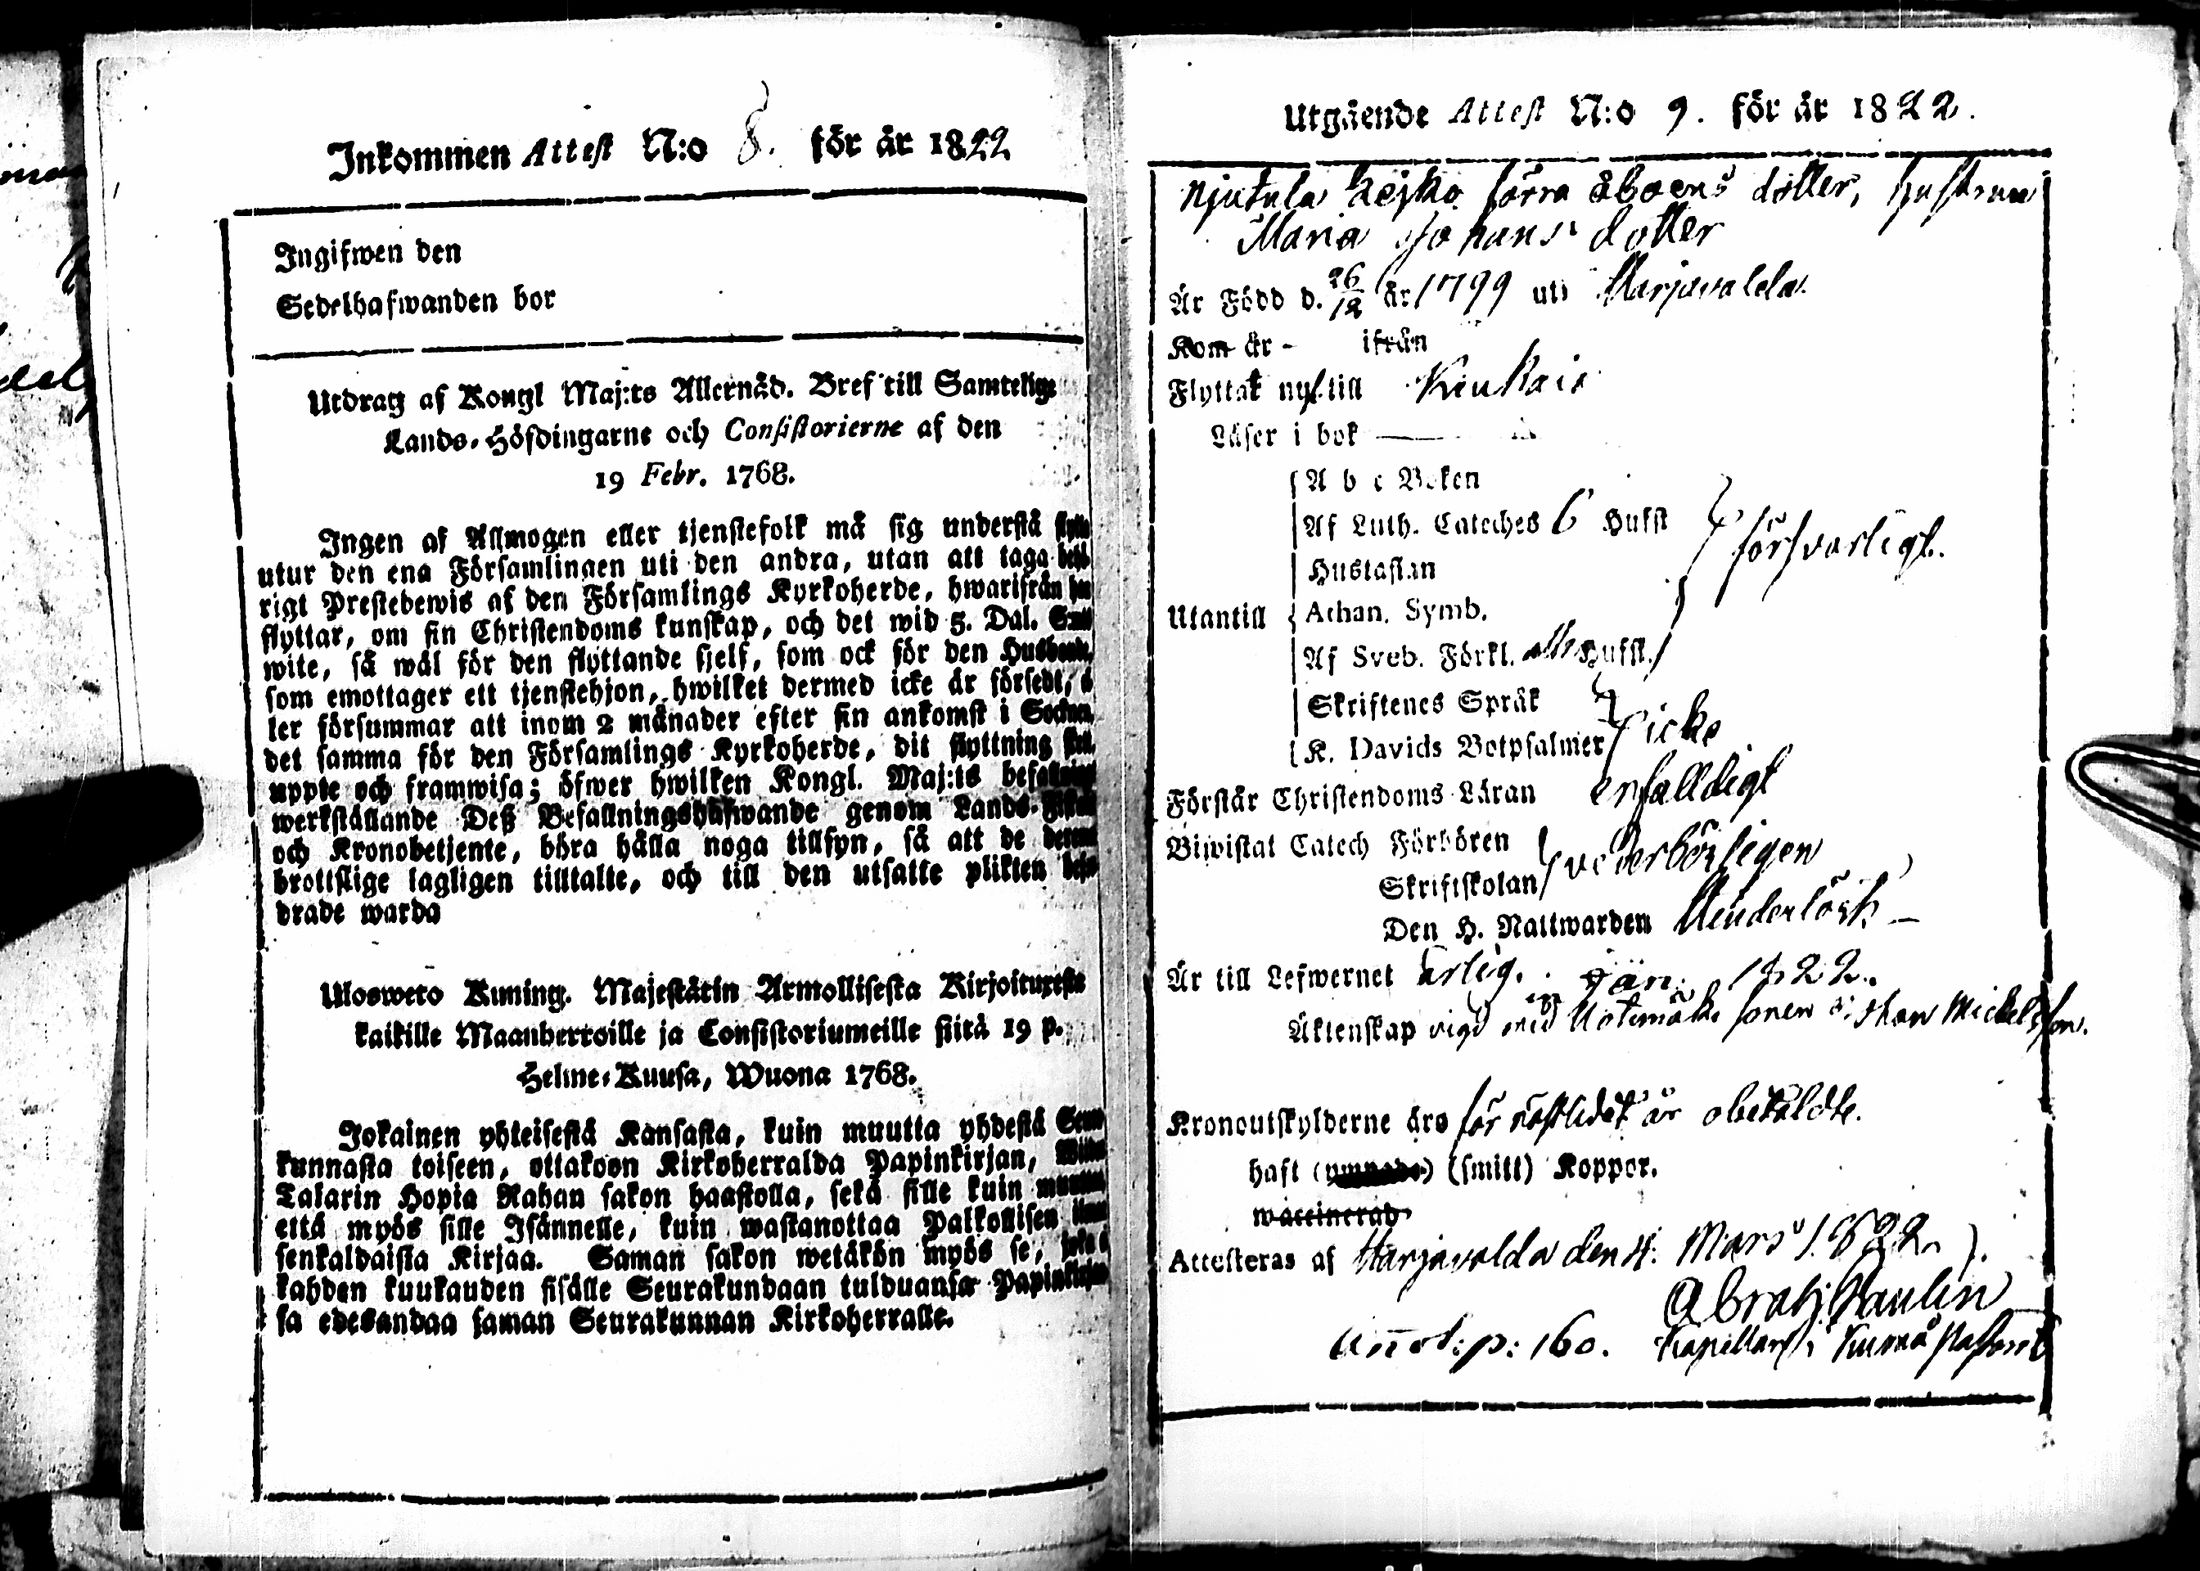 Inkommen Attest N:o 8. för år 1822
Ingifwen den
Sedelhafwanden bor
Utdrag af Kongl Maj:ts Allernåd. Bref till Samtelige
Lands-Höfdingarne och Consistorierne af den
19 Febr. 1768.
Ingen af Allmogen eller tjenstefolk må sig understå
utur den ena Församlingen uti den andra, utan att taga
rigt Prestebewis af den Församlings Kyrkoherde, hwarifrån
flyttar, om sin Christendoms kunskap, och det wid 5. Dal.
wite, så wäl för den flyttande sjelf, som ock för den
som emottager ett tjenstehjon, hwilket dermed icke är försedt,
ler försummar att inom 2 månader efter sin ankomst i Socknen,
det samma för den Församlings Kyrkoherde, dit flyttning
uppte och framwisa; öfwer hwilken Kongl. Maj:ts befallning
werkställande Deß Befallningshafwande genom Lands-
och Kronobetjente, böra hålla noga tillsyn, så att de
brottslige lagligen tilltalte, och till den utsatte plikten
drade warda
Ulosweto Kuning. Majestätin Armollisesta Kirjoituxesta
kaikille Maanherroille ja Consistoriumeille siitä 19 p.
Helme-Kuusa, Wuona 1768.
Jokainen yhteisestä Kansasta, kuin muutta yhdestä
kunnasta toiseen, ottakoon Kirkoherralda Papinkirjan,
Talarin Hopia Rahan sakon haastolla, sekä sille kuin
että myös sille Isännelle, kuin wastanottaa Palkollisen
senkaldaista Kirjaa. Saman sakon wetäkön myös se,
kahden kuukauden sisälle Seurakundaan tulduansa
sa edesandaa saman Seurakunnan Kirkoherralle.
Utgående Attest N:o 9. för år 1822.
förra åboens dotter, hustrun
Maria Johans dotter
Är Född d. 26/12 år 1799 uti Harjavalda
Kom år - ifrån
Flyttat nu till Kiukais
Läser i bok
A b c Boken
Af Luth. Cateches 6 Hufst
Hustaflan
Utantill Athan. Symb.
försvarligt.
Af Sveb. Förkl. alla Hufst.
Skriftenes Språk
K. Davids Botpsalmer icke
Förstår Christendoms Läran enfaldigt
Biwistat Catech Förhören
Skriftskolan vederbörligen
Den H. Nattwarden
Är till Lefwernet ärlig. Jan. 1822.
Äktenskap vigd med sonen Johan Mickelsson.
Kronoutskylderne äro för nästledet år obetaldte.
haft (smitt) Koppor.
waccinerad
Attesteras af Harjavalda den 4. Mars 1822.
Abrah: Paulin
Annot: p: 160. Kapellans i